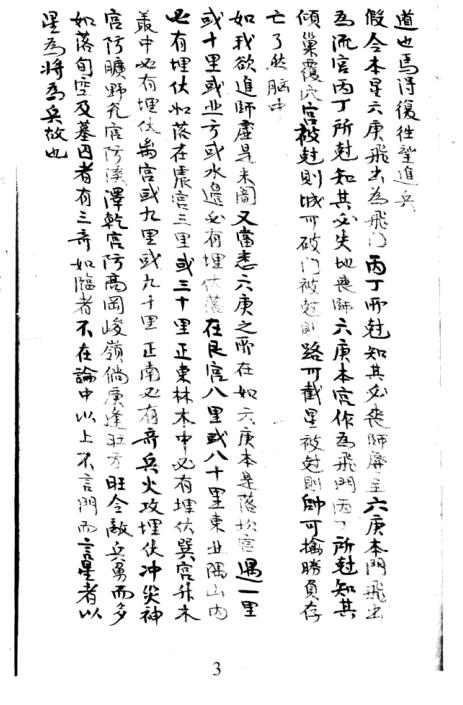 道也焉得復往望進兵
假令本星六庚飛出為飛门丙丁所尅知其必喪師辱主六庚本門飛出
為流宮丙丁所尅知其必失地喪師六庚本宮作為飛門丙丁所尅知其
傾巢覆 宮被尅則城可破门被尅則路可截星被尅則帥可擒勝負存
亡了然脑中
如我欲進師虛是未闇又當悉六庚之所在如六庚本是落坎宮遇一里
或十里或北方或水邊必有埋伏落在艮宮八里或八十里東北隅山內
必有埋伏如落在震宮三里或三十里正東林木中必有埋伏巽宮 木
叢中必有埋伏离宮或九里或九十里正南必有奇兵火攻埋伏冲 神
宮防曠野兌宮防溪澤乾宮防高岡峻嶺倘庚逢旺方旺令敵兵勇而多
如落旬空及墓囚者有三奇如臨者不在論中以上不言門而言星者以
星為將為兵故也
3